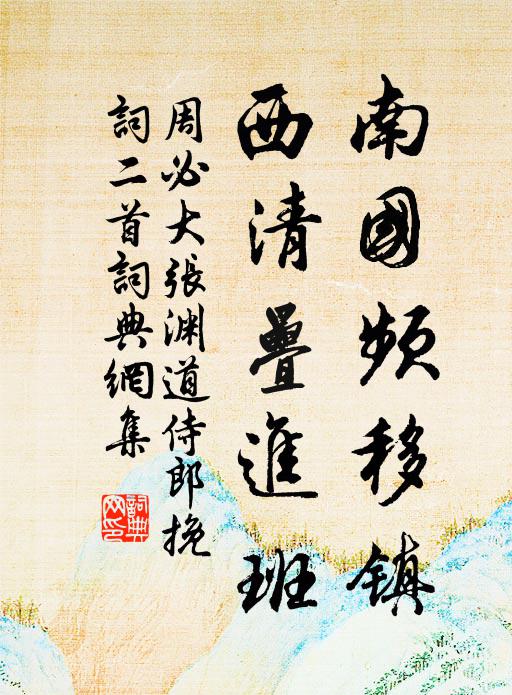 南國頻移鎮
西清疊進班
周必大張渊道侍郎挽
詞二首詞典網集
詞典
网印